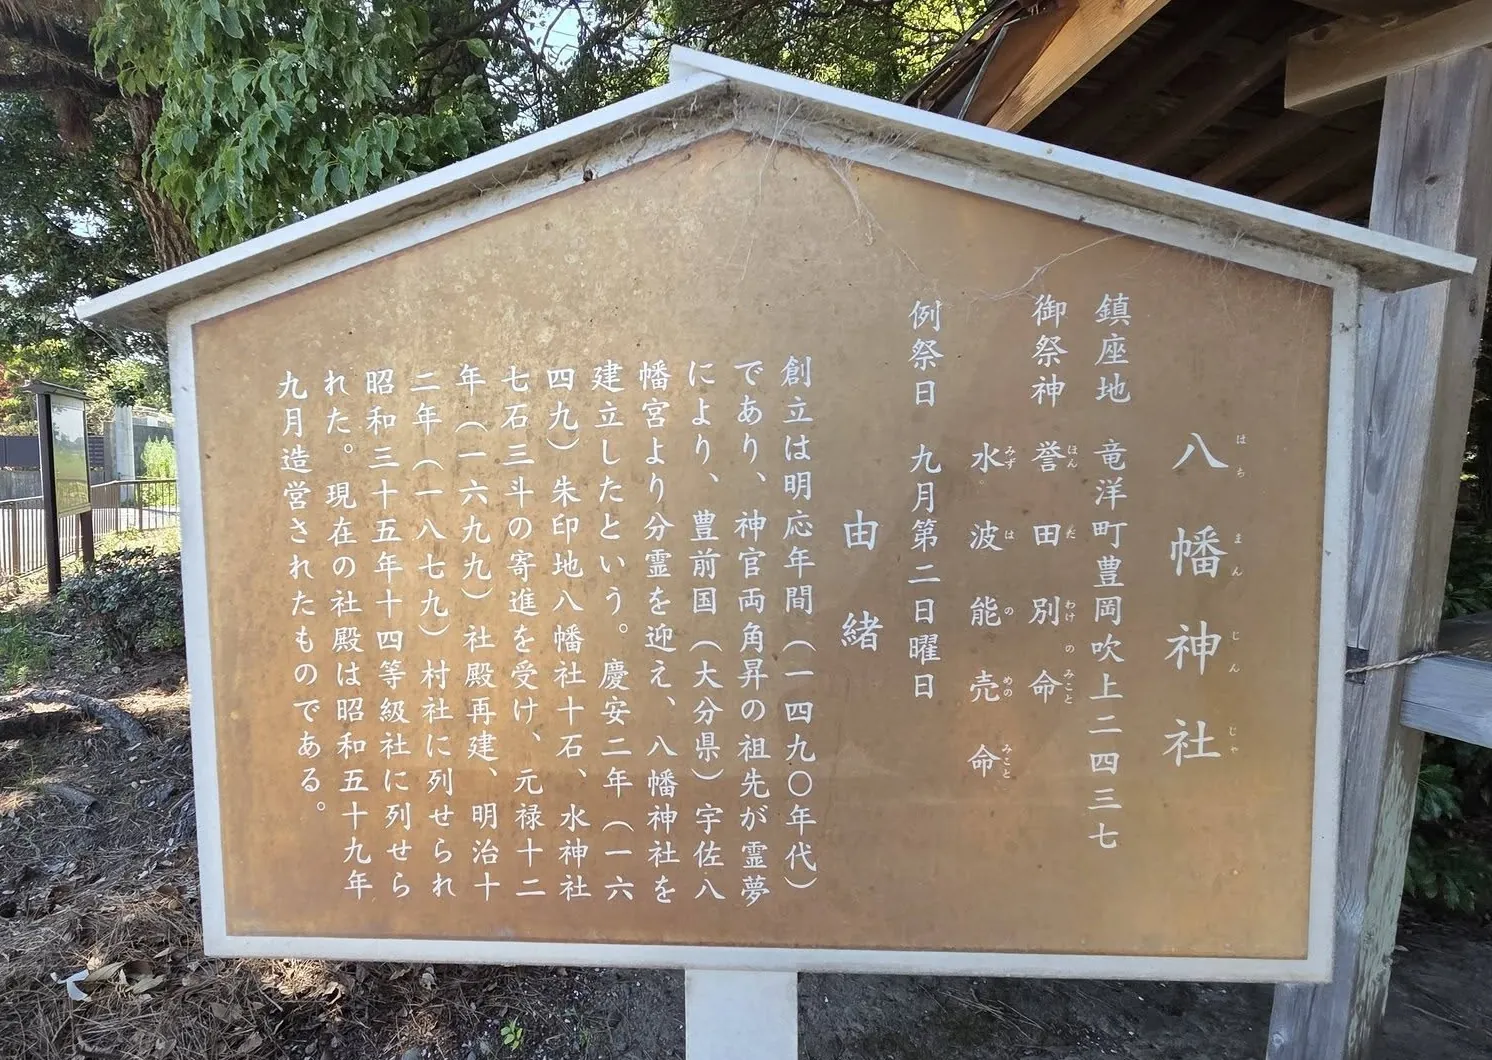 八幡神社
はちまんじんじゃ
鎮座地 竜洋町豊岡吹上二四三七
御祭神 誉田別命
ほんだわけのみこと
水波能売命
みずはのめのみこと
例祭日 九月第二日曜日
由緒
創立は明応年間（一四九〇年代）
であり、神官両角昇の祖先が霊夢
により、豊前国（大分県）宇佐八
幡宮より分霊を迎え、八幡神社を
建立したという。慶安二年（一六
四九）朱印地八幡社十石、水神社
七石三斗の寄進を受け、元禄十二
年（一六九九）社殿再建、明治十
二年（一八七九）村社に列せられ
昭和三十五年十四等級社に列せら
れた。現在の社殿は昭和五十九年
九月造営されたものである。